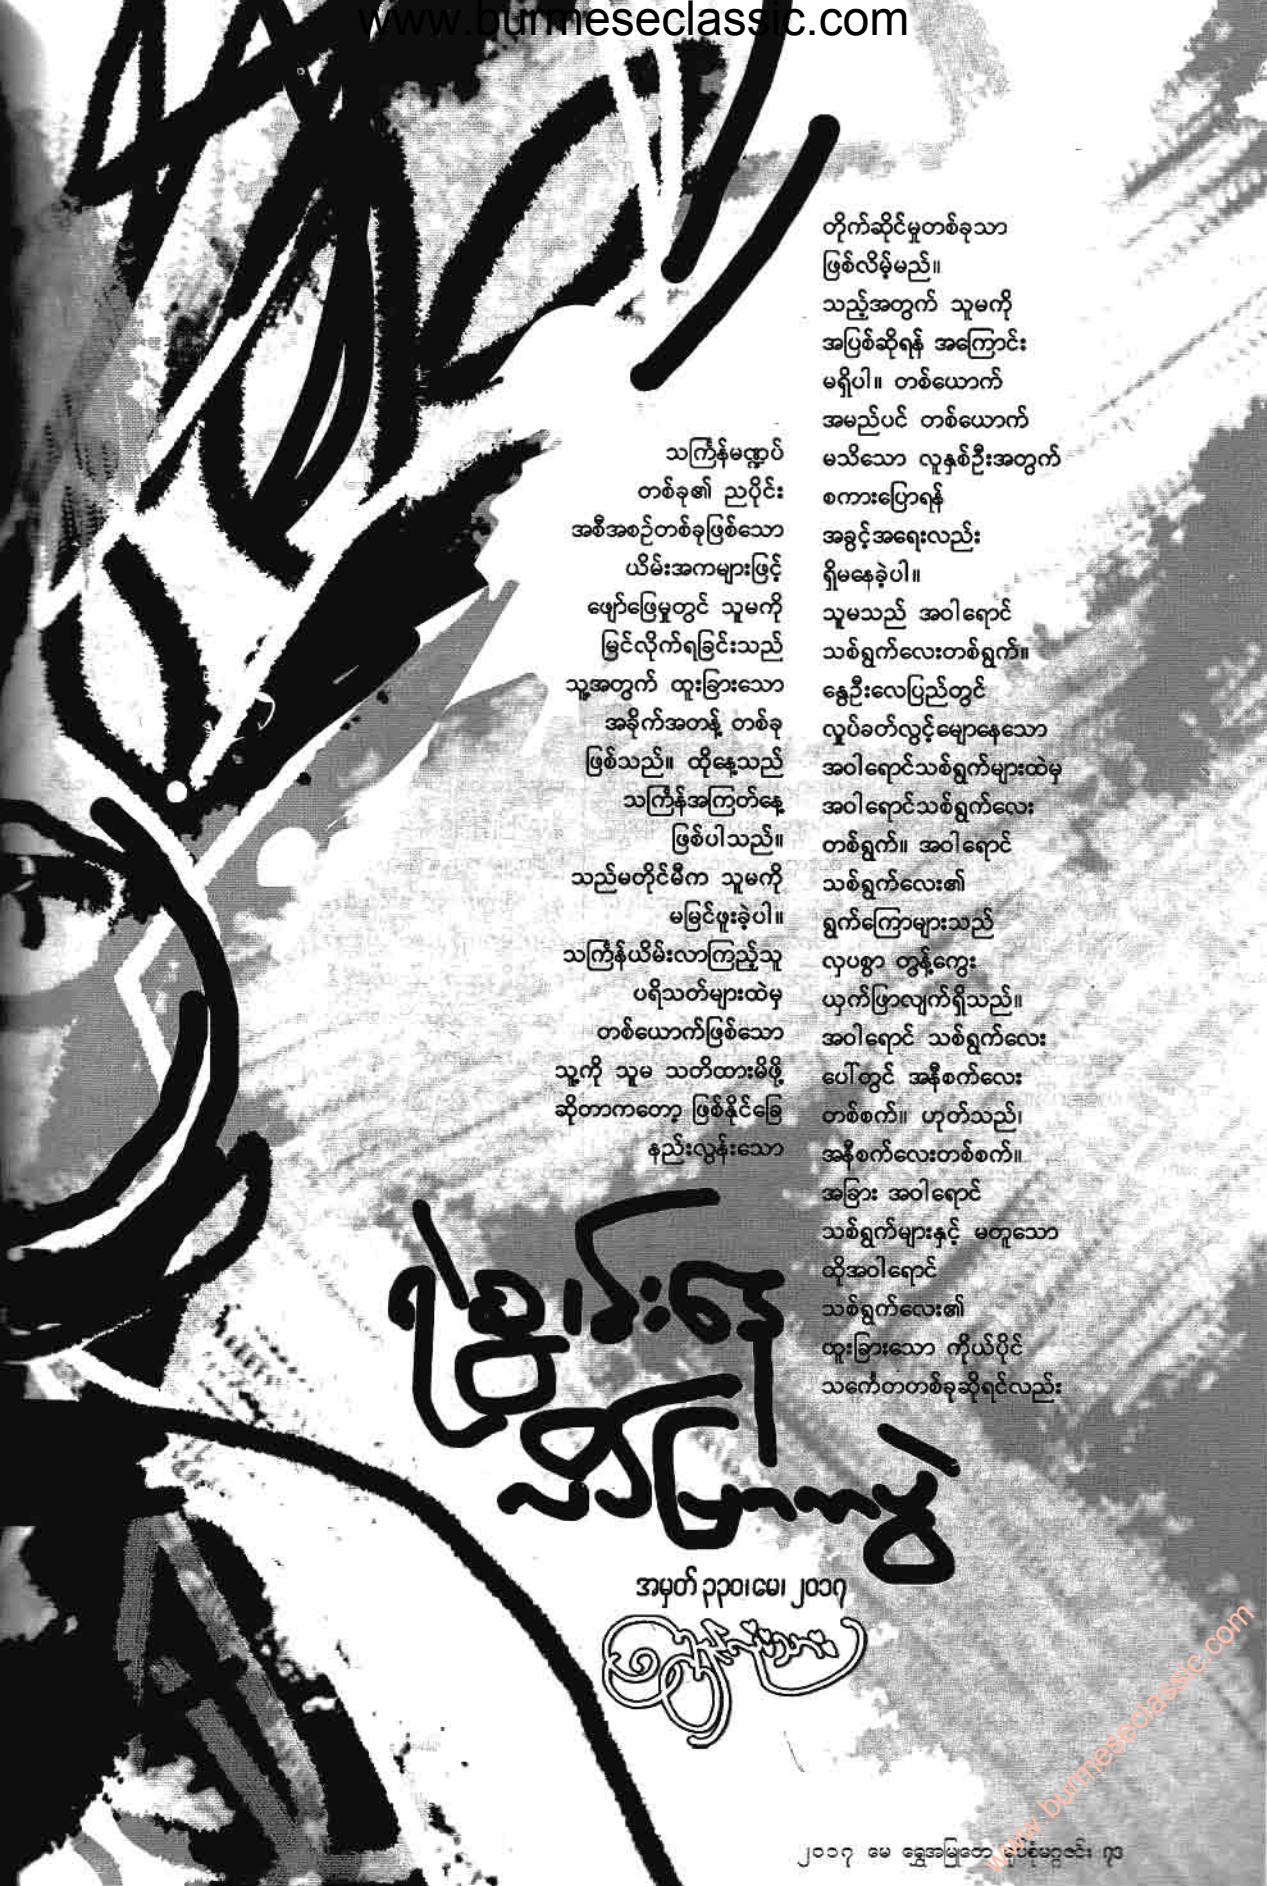 www.burmeseclassic.com
သင်္ကြန်မဏ္ဍပ်
တစ်ခု၏ ညပိုင်း
အစီအစဉ်တစ်ခုဖြစ်သော
ယိမ်းအကများဖြင့်
ဖျော်ဖြေမှုတွင် သူမကို
မြင်လိုက်ရခြင်းသည်
သူ့အတွက် ထူးခြားသော
အခိုက်အတန့် တစ်ခု
ဖြစ်သည်။ ထိုနေ့သည်
သင်္ကြန်အကြတ်နေ့
ဖြစ်ပါသည်။
သည်မတိုင်မီက သူမကို
မမြင်ဖူးခဲ့ပါ။
သင်္ကြန်ယိမ်းလာကြည့်သူ
ပရိသတ်များထဲမှ
တစ်ယောက်ဖြစ်သော
သူ့ကို သူမ သတိထားမိဖို့
ဆိုတာကတော့ ဖြစ်နိုင်ခြေ
နည်းလွန်းသော
တိုက်ဆိုင်မှုတစ်ခုသာ
ဖြစ်လိမ့်မည်။
သည့်အတွက် သူမကို
အပြစ်ဆိုရန် အကြောင်း
မရှိပါ။ တစ်ယောက်
အမည်ပင် တစ်ယောက်
မသိသော လူနှစ်ဦးအတွက်
စကားပြောရန်
အခွင့်အရေးလည်း
ရှိမနေခဲ့ပါ။
သူမသည် အဝါရောင်
သစ်ရွက်လေးတစ်ရွက်။
နွေဦးလေပြည်တွင်
လှုပ်ခတ်လွင့်မျောနေသော
အဝါရောင်သစ်ရွက်များထဲမှ
အဝါရောင်သစ်ရွက်လေး
တစ်ရွက်။ အဝါရောင်
သစ်ရွက်လေး၏
ရွက်ကြောများသည်
လှပစွာ တွန့်ကွေး
ယှက်ဖြာလျက်ရှိသည်။
အဝါရောင် သစ်ရွက်လေး
ပေါ်တွင် အနီစက်လေး
တစ်စက်။ ဟုတ်သည်၊
အနီစက်လေးတစ်စက်။
အခြား အဝါရောင်
သစ်ရွက်များနှင့် မတူသော
ထိုအဝါရောင်
သစ်ရွက်လေး၏
ထူးခြားသော ကိုယ်ပိုင်
သင်္ကေတတစ်ခုဆိုရင်လည်း
အမှတ် ၃၃၀၊ မေ၊ ၂၀၁၇
၂၀၁၇ မေ ရွှေအမြုတေ ရုပ်စုံမဂ္ဂဇင်း ၇၁
www.burmeseclassic.com